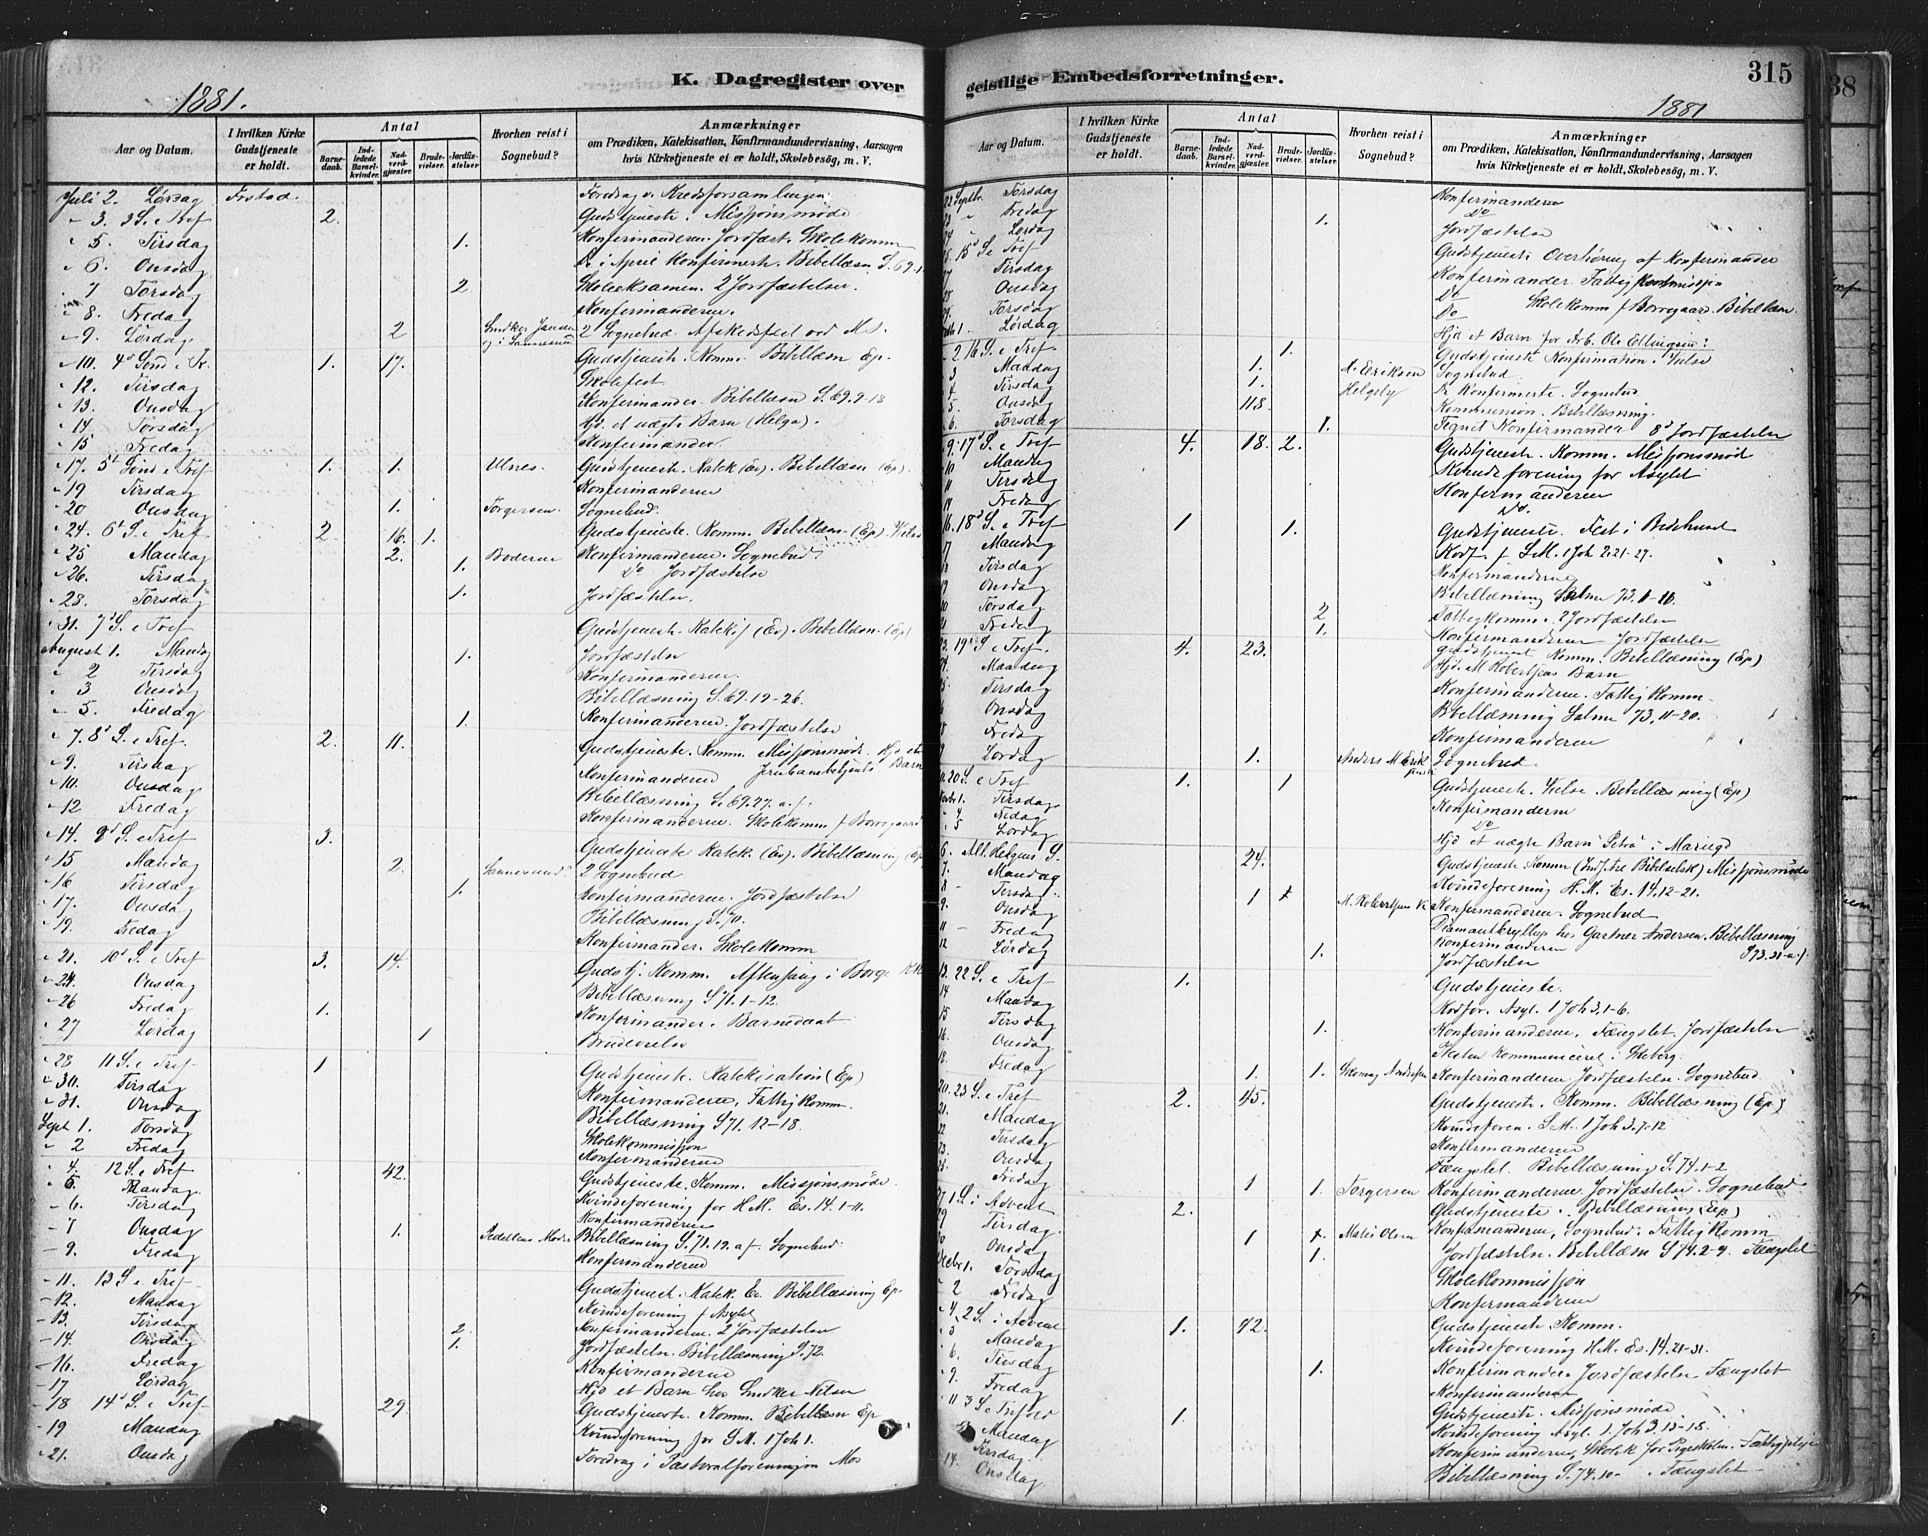 K. Dagregister over
1881.
Aar og Datum.
I hvilken Kirke Gudstjeneste er holdt.
Antal
Barnedaab.
Indledede Barselkvinder.
Nadverdgjæster.
Brudevielser.
Jordfæstelser.
Hvorhen reist i Sognebud?
Anmærkninger
om Prædiken, Katekisation, Konfirmandundervisning, Aarsagen
hvis Kirketjeneste ei er holdt, Skolebesøg, m. V.
Juli 2. Lørdag
3. 3 S. e Tref 2. Gudstjeneste. Missjonsmøde
5. Tirsdag 1. Konfirmanderne. Jordfæst. Skolekomm
6. Onsdag De i April Konfirmerte. Bibellæsn S. 69.1
7 Torsdag 2 Skoleeksamen. 2 Jordfæstelser.
8. Fredag Konfirmanderne.
9. Lørdag 2 2 Sognebud.
10. 4d Sønd e Tr. 1. 17. Gudstjeneste. Komm. Bibellæsn Ep.
12. Tirsdag Skolefest
13. Onsdag Konfirmander. Bibellæsn S. 69.
14 Torsdag Hjd. et uægte Barn (Helga).
15 Fredag Konfirmander.
17. 5d Sønd e Tref 1. 1. Ulnes. Gudstjeneste. Katek (Ev). Bibellæsn (Ep).
19 Tirsdag Konfirmanderne
20 Onsdag 1. Torgersen. Sognebud.
24. 6d S. e Tref 2 16. 1. Gudstjeneste. Komm. Bibellæsn (Ep) Vielse
25 Mandag 2. Konfirmanderne. Sognebud
26. Tirsdag 1. Do Jordfæstelse
28. Torsdag 1. Jordfæstelse.
31. 7d S. e Tref Gudstjeneste. Katekis (Ev). Bibellæsn (Ep)
August 1. Mandag 1. Jordfæstelse
2 Tirsdag Konfirmanderne.
3 Onsdag Bibellæsning S. 69. 19-26.
5. Fredag 1. Konfirmanderne. Jordfæstelse
7. 8d S. e Tref 2. 11. Gudstjeneste. Komm. Missjonsmøde. Hjd et
9. Tirsdag Konfirmanderne Jernbanebetjents Barn
10. Onsdag Bibellæsning S. 69.27. a.f.
12 Fredag Konfirmanderne. Skolekomm f Borregaard
14. 9d S. e Tref 3. Gudstjeneste Katek. (Ev). Bibellæsning (Ep
15 Mandag 2. Sannesund 2 Sognebud
16 Tirsdag 1. Konfirmanderne. Jordfæstelse
17. Onsdag Bibellæsning S. 70.
19. Fredag Konfirmander. Skolekomm
21. 10d S. e Tref 3. 14. Gudstj. Komm. Aftensang i Borge
24. Onsdag Bibellæsning S 71. 1-12.
26 Fredag 1. Konfirmander. Barnedaab
27 Lørdag 1 Brudevielse
28 11 S. e Tref 1 Gudstjeneste. Katekisation (Ep)
30. Tirsdag Konfirmanderne, Fattigkomm.
31. Onsdag Bibellæsning S 71. 12-18.
Sept 1. Torsdag Skolekommissjon
2 Fredag Konfirmanderne
4. 12 S. e Tref 42. Gudstjeneste. Komm. Missjonsmøde.
5. Mandag Kvindeforening for H.M. Es. 14. 1-11.
6. Tirsdag Konfirmanderne
7 Onsdag 1. Bibellæsning S. 71. 19. a.f. Sognebud
9. Fredag Konfirmanderne
11. 13 S. e Tref Gudstjeneste. Katek. Ev. Bibellæsning Ep.
12. Mandag Kvindeforening f Asylet
13. Tirsdag 2. Konfirmanderne. 2 Jordfæstelser
14 Onsdag 1. Jordfæstelse. Bibellæsning S. 72.
16. Fredag Konfirmanderne
17 Lørdag Hjd et Barn hos Snedker Nilsen
18 14d S. e Tref 29. Gudstjeneste. Komm. Bibellæsn Ep
19 Mandag Kvindeforening for S.M. 1 Joh 1.
21. Onsdag Foredrag i Pastoralforeningen Mos
geistlige Embedsforretninger.
315
1881
Aar og Datum.
I hvilken Kirke Gudstjeneste er holdt.
Antal
Barnedaab.
Indledede Barselkvinder.
Nadverdgjæster.
Brudevielser.
Jordfæstelser.
Hvorhen reist i Sognebud?
Anmærkninger
om Prædiken, Katekisation, Konfirmandundervisning, Aarsagen
hvis Kirketjeneste ei er holdt, Skolebesøg, m. V.
22 Septbr. Torsdag Konfirmanderne
23 Fredag 1. Do
24 Lørdag Jordfæstelse
15d S e Tref Gudstjeneste Overhøring af Konfirmander
Tirsdag Konfirmander. Fattigkommissjon
28 Onsdag Do Skolekomm f Borregaard. Bibellæsn
29. Torsdag Do
1. Lørdag Hjd et Barn for Arb. Ole
2 16 S. e Tref 1. Gudstjeneste Konfirmation. Vielse
3 Mandag 1. Eriksen Sognebud
4. Tirsdag 1. Helgeby De Konfirmerte. Sognebud
5. Onsdag 118. Kommunion. Bibellæsning.
6. Torsdag 1. Tegnet Konfirmander 8d Jordfæstelse
9. 17d S. e Tref 4. 18. 2. Gudstjeneste. Komm. Missjonsmød
10 Mandag Kvindeforening for Asylet
11 Tirsdag Konfirmanderne
14 Fredag Do.
16. 18d S. e Tref 1 1. Gudstjeneste. Fest i Bedehuset
17 Mandag Kvdf. f S.M. 1 Joh 2. 21-27.
18 Tirsdag Konfirmanderne
19 Onsdag Bibellæsning Salme 73. 1-10.
20 Torsdag 2 Fattigkomm. 2 Jordfæstelser
21 Fredag 1. Konfirmanderne Jordfæstelse
23. 19d S e Tref. 4. 23. Gudstjeneste Komm. Bibellæsning (Ep)
24. Mandag Hjd. M Robertsens Barn
25. Tirsdag Konfirmanderne. Fattigkomm
Onsdag Bibellæsning Salme 73. 11-20.
Fredag Konfirmanderne
Lørdag 1. Anders M Erik Sognebud
20 S. e Tref 1. 1 Gudstjeneste. Vielse. Bibellæsning (Ep)
1. Tirsdag Konfirmanderne
4 Fredag Do
5 Lørdag Hjd et uægte Barn "Petra" i
6. All. Helgens S. 24. Gudstjeneste Komm Missjonsmøde
7. Mandag Kvindeforening H.M. Es. 14. 12-21.
8 Tirsdag 1 Konfirmanderne. Sognebud
9. Onsdag Diamantbryllup hos Gartner Andersen. Bibellæsning
11 Fredag Konfirmanderne S 73. 21-a.f.
12 Lørdag 1. Jordfæstelse
13. 22 S. e Tref 1. Gudstjeneste.
14 Mandag Kvdfor. Asyl. 1 Joh 3. 1-6.
15 Tirsdag 1. Konfirmanderne. Fængslet. Jordfæstelse
16. Onsdag
18. Fredag 1. 1. Konfirmanderne Jordfæstelse. Sognebud
20. 23 S. e Tref 2. 45. Gudstjeneste. Komm. Bibellæsning (Ep)
21. Mandag Kvindeforen. S.M. 1 Joh 3. 7-12
22 Tirsdag Konfirmanderne
23. Onsdag Fængslet. Bibellæsning S. 74. 1-2
Fredag 1 1. Torgersen Konfirmanderne. Jordfæstelse. Sognebud
27 1 S. i Advent 2. Gudstjeneste. Bibellæsning (Ep)
29 Tirsdag 1 Mates Olsen Konfirmanderne, Sognebud, Fattigkomm
Onsdag 1. Jordfæstelse. Bibellæsn S 74. 2-9. Fængslet
Decbr 1. Torsdag Skolekommissjon
2 Fredag Konfirmanderne
4. 2 S. i Advent 1. 42. Gudstjeneste. Komm.
5 Mandag Kvindeforening H.M. Es. 14. 21-31.
6. Tirsdag 1. Konfirmander. Jordfæstelse. Fængslet
9. Fredag Konfirmanderne
11 3 S. 1. Gudstjeneste. Missjonsmøde
Mandag Kvindeforening Asyl. 1. Joh 3. 13-18.
Tirsdag Konfirmanderne,
14. Onsdag Bibellæsning S. 74. 10- Fængslet
38